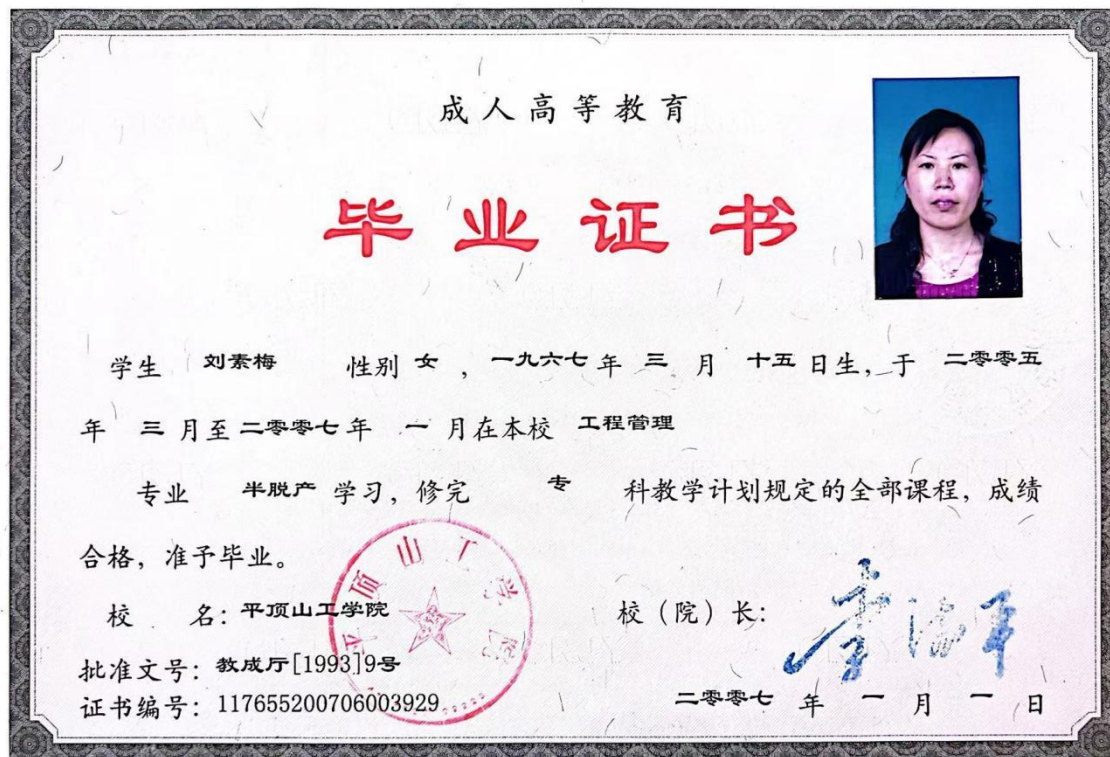 成人高等教育
毕业证书
学生 刘素梅 性别 女 , 一九六七 年 三 月 十五 日生, 于 二零零五
年 三 月至 二零零七 年 一 月在本校 工程管理
专业 半脱产 学习, 修完 专 科教学计划规定的全部课程, 成绩
合格, 准予毕业。
校 名: 平顶山工学院
校(院)长:
批准文号: 教成厅[1993]9号
证书编号: 117655200706003929
二零零七 年 一 月 一 日
平顶山工学院